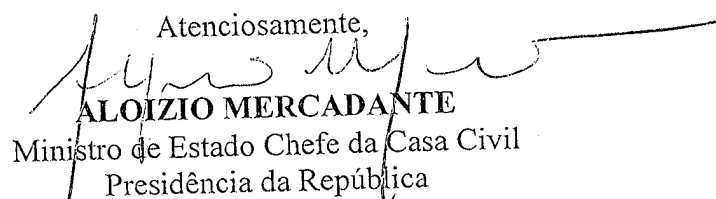 Atenciosamente,
ALOIZIO MERCADANTE
Ministro de Estado Chefe da Casa Civil
Presidência da República